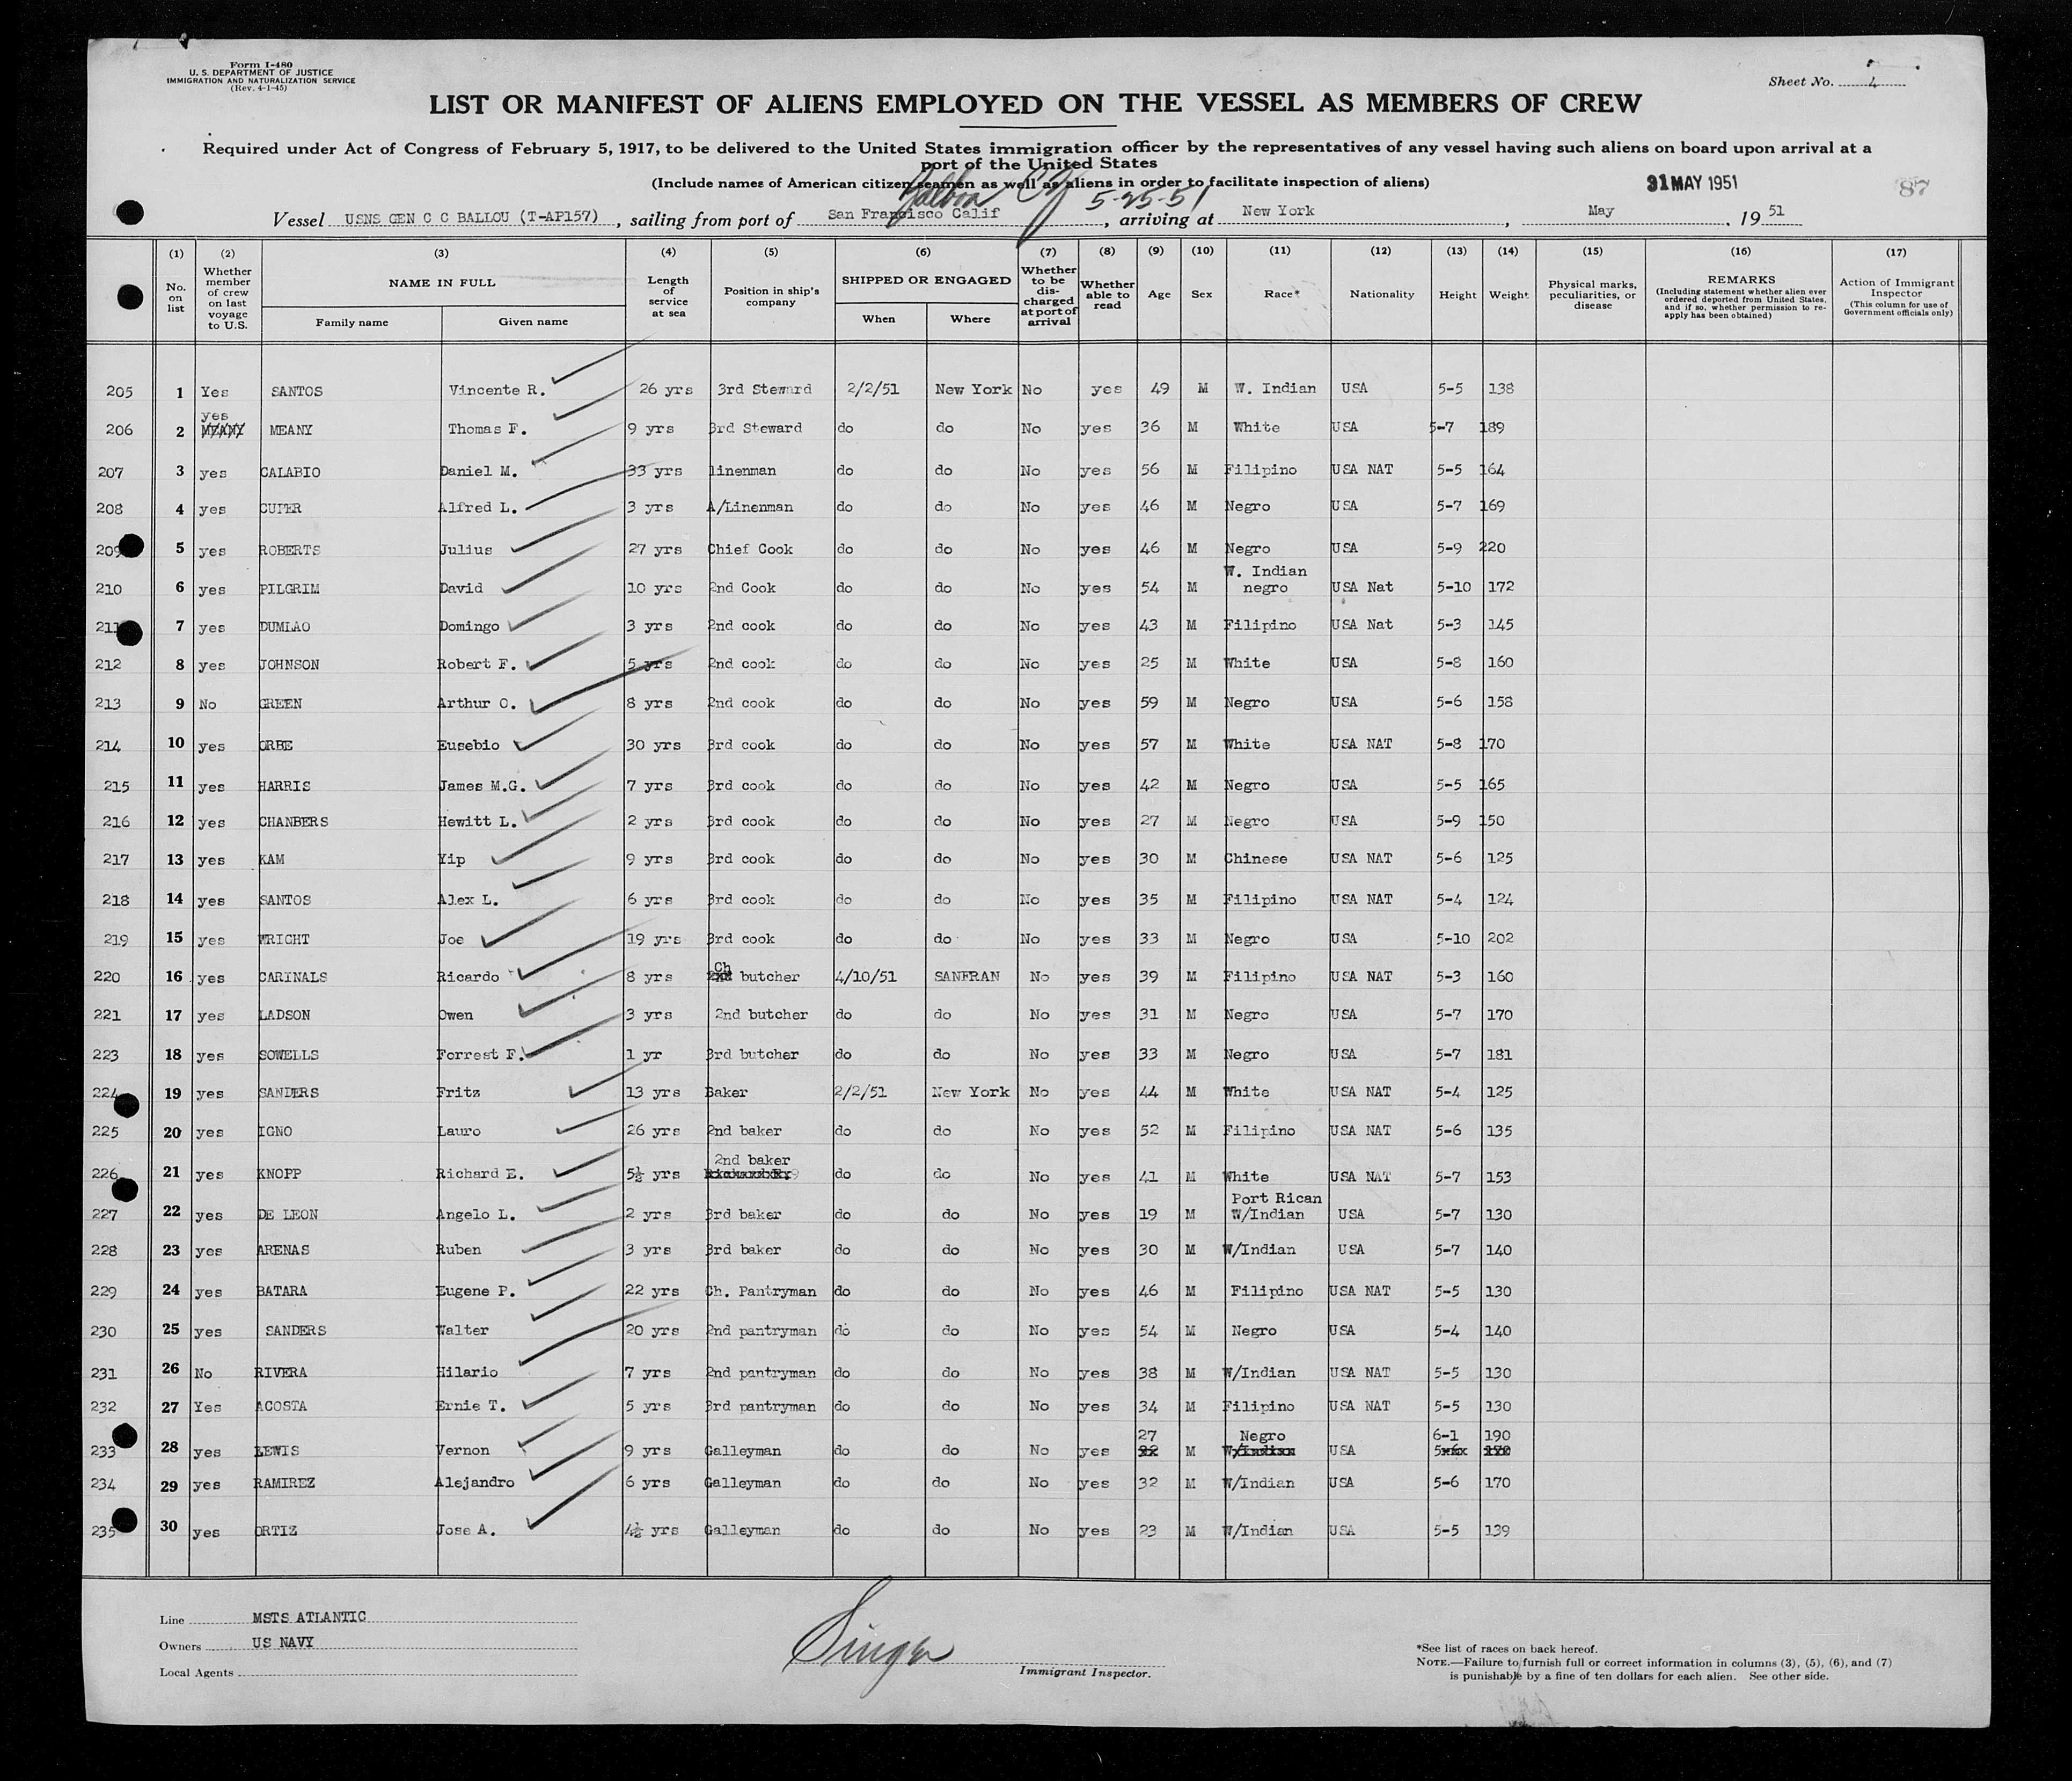 Form I-480
U. S. DEPARTMENT OF JUSTICE
IMMIGRATION AND NATURALIZATION SERVICE
(Rev. 4-1-45)
Sheet No. 4
LIST OR MANIFEST OF ALIENS EMPLOYED ON THE VESSEL AS MEMBERS OF CREW
Required under Act of Congress of February 5, 1917, to be delivered to the United States immigration officer by the representatives of any vessel having such aliens on board upon arrival at a
port of the United States
(Include names of American citizen seamen as well as aliens in order to facilitate inspection of aliens)
31 MAY 1951
87
Balboa CZ 5-25-51
Vessel USNS GEN C C BALLOU (T-AP157), sailing from port of San Francisco Calif, arriving at New York, May, 19 51
(1) (2) (3) (4) (5) (6) (7) (8) (9) (10) (11) (12) (13) (14) (15) (16) (17)
No. on list
Whether member of crew on last voyage to U.S.
NAME IN FULL
Family name
Given name
Length of service at sea
Position in ship's company
SHIPPED OR ENGAGED
When
Where
Whether to be discharged at port of arrival
Whether able to read
Age
Sex
Race*
Nationality
Height
Weight
Physical marks, peculiarities, or disease
REMARKS
(Including statement whether alien ever ordered deported from United States, and if so, whether permission to re-apply has been obtained)
Action of Immigrant Inspector
(This column for use of Government officials only)
205 1 Yes SANTOS Vincente R. 26 yrs 3rd Steward 2/2/51 New York No yes 49 M W. Indian USA 5-5 138
yes
206 2 MEANY MEANY Thomas F. 9 yrs 3rd Steward do do No yes 36 M White USA 5-7 189
207 3 yes CALABIO Daniel M. 33 yrs linenman do do No yes 56 M Filipino USA NAT 5-5 164
208 4 yes Alfred L. 3 yrs A/Linenman do do No yes 46 M Negro USA 5-7 169
209 5 yes ROBERTS Julius 27 yrs Chief Cook do do No yes 46 M Negro USA 5-9 220
W. Indian
210 6 yes PILGRIM David 10 yrs 2nd Cook do do No yes 54 M negro USA Nat 5-10 172
211 7 yes DUMLAO Domingo 3 yrs 2nd cook do do No yes 43 M Filipino USA Nat 5-3 145
212 8 yes JOHNSON Robert F. 5 yrs 2nd cook do do No yes 25 M White USA 5-8 160
213 9 No GREEN Arthur O. 8 yrs 2nd cook do do No yes 59 M Negro USA 5-6 158
214 10 yes ORBE Eusebio 30 yrs 3rd cook do do No yes 57 M White USA NAT 5-8 170
215 11 yes HARRIS James M.G. 7 yrs 3rd cook do do No yes 42 M Negro USA 5-5 165
216 12 yes CHANBERS Hewitt L. 2 yrs 3rd cook do do No yes 27 M Negro USA 5-9 150
217 13 yes KAM Yip 9 yrs 3rd cook do do No yes 30 M Chinese USA NAT 5-6 125
218 14 yes SANTOS Alex L. 6 yrs 3rd cook do do No yes 35 M Filipino USA NAT 5-4 124
219 15 yes WRIGHT Joe 19 yrs 3rd cook do do No yes 33 M Negro USA 5-10 202
220 16 yes CARINALS Ricardo 8 yrs Ch butcher 4/10/51 SANFRAN No yes 39 M Filipino USA NAT 5-3 160
221 17 yes LADSON Owen 3 yrs 2nd butcher do do No yes 31 M Negro USA 5-7 170
223 18 yes SOWELLS Forrest F. 1 yr 3rd butcher do do No yes 33 M Negro USA 5-7 181
224 19 yes SANDERS Fritz 13 yrs Baker 2/2/51 New York No yes 44 M White USA NAT 5-4 125
225 20 yes IGNO Lauro 26 yrs 2nd baker do do No yes 52 M Filipino USA NAT 5-6 135
226 21 yes KNOPP Richard E. 5½ yrs 2nd baker do do No yes 41 M White USA NAT 5-7 153
Port Rican
227 22 yes DE LEON Angelo L. 2 yrs 3rd baker do do No yes 19 M W/Indian USA 5-7 130
228 23 yes ARENAS Ruben 3 yrs 3rd baker do do No yes 30 M W/Indian USA 5-7 140
229 24 yes BATARA Eugene P. 22 yrs Ch. Pantryman do do No yes 46 M Filipino USA NAT 5-5 130
230 25 yes SANDERS Walter 20 yrs 2nd pantryman do do No yes 54 M Negro USA 5-4 140
231 26 No RIVERA Hilario 7 yrs 2nd pantryman do do No yes 38 M W/Indian USA NAT 5-5 130
232 27 Yes ACOSTA Ernie T. 5 yrs 3rd pantryman do do No yes 34 M Filipino USA NAT 5-5 130
27 Negro 6-1 190
233 28 yes LEWIS Vernon 9 yrs Galleyman do do No yes 32 M W/Indian USA 170
234 29 yes RAMIREZ Alejandro 6 yrs Galleyman do do No yes 32 M W/Indian USA 5-6 170
235 30 yes ORTIZ Jose A. 4½ yrs Galleyman do do No yes 23 M W/Indian USA 5-5 139
Line MSTS ATLANTIC
Owners US NAVY
Local Agents
Singer
Immigrant Inspector.
*See list of races on back hereof.
NOTE.—Failure to furnish full or correct information in columns (3), (5), (6), and (7)
is punishable by a fine of ten dollars for each alien. See other side.